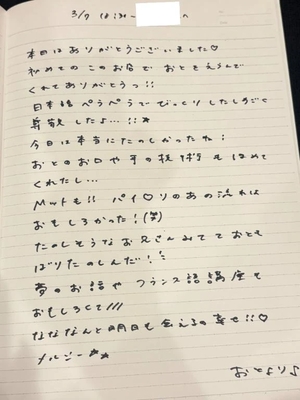 3/7 18:20~
本日はありがとうございました♡
初めてのこのお店でおとをえらんで
くれてありがとうっ!!
日本語ぺらぺらでびっくりしたしすごく
尊敬したよ...!!☆
今日は本当にたのしかったね!
おとのお口や手の技術もほめて
くれたし...
Mっトも!! パイ♡リのあの流れは
おもしろかった!(笑)
たのしそうなお兄さんみてておとも
ばりたのしんだ!
夢のお話やフランス語講座も
おもしろくて///
なななんと明日も会えるの幸せ!!♡
メルシー
おとより♪